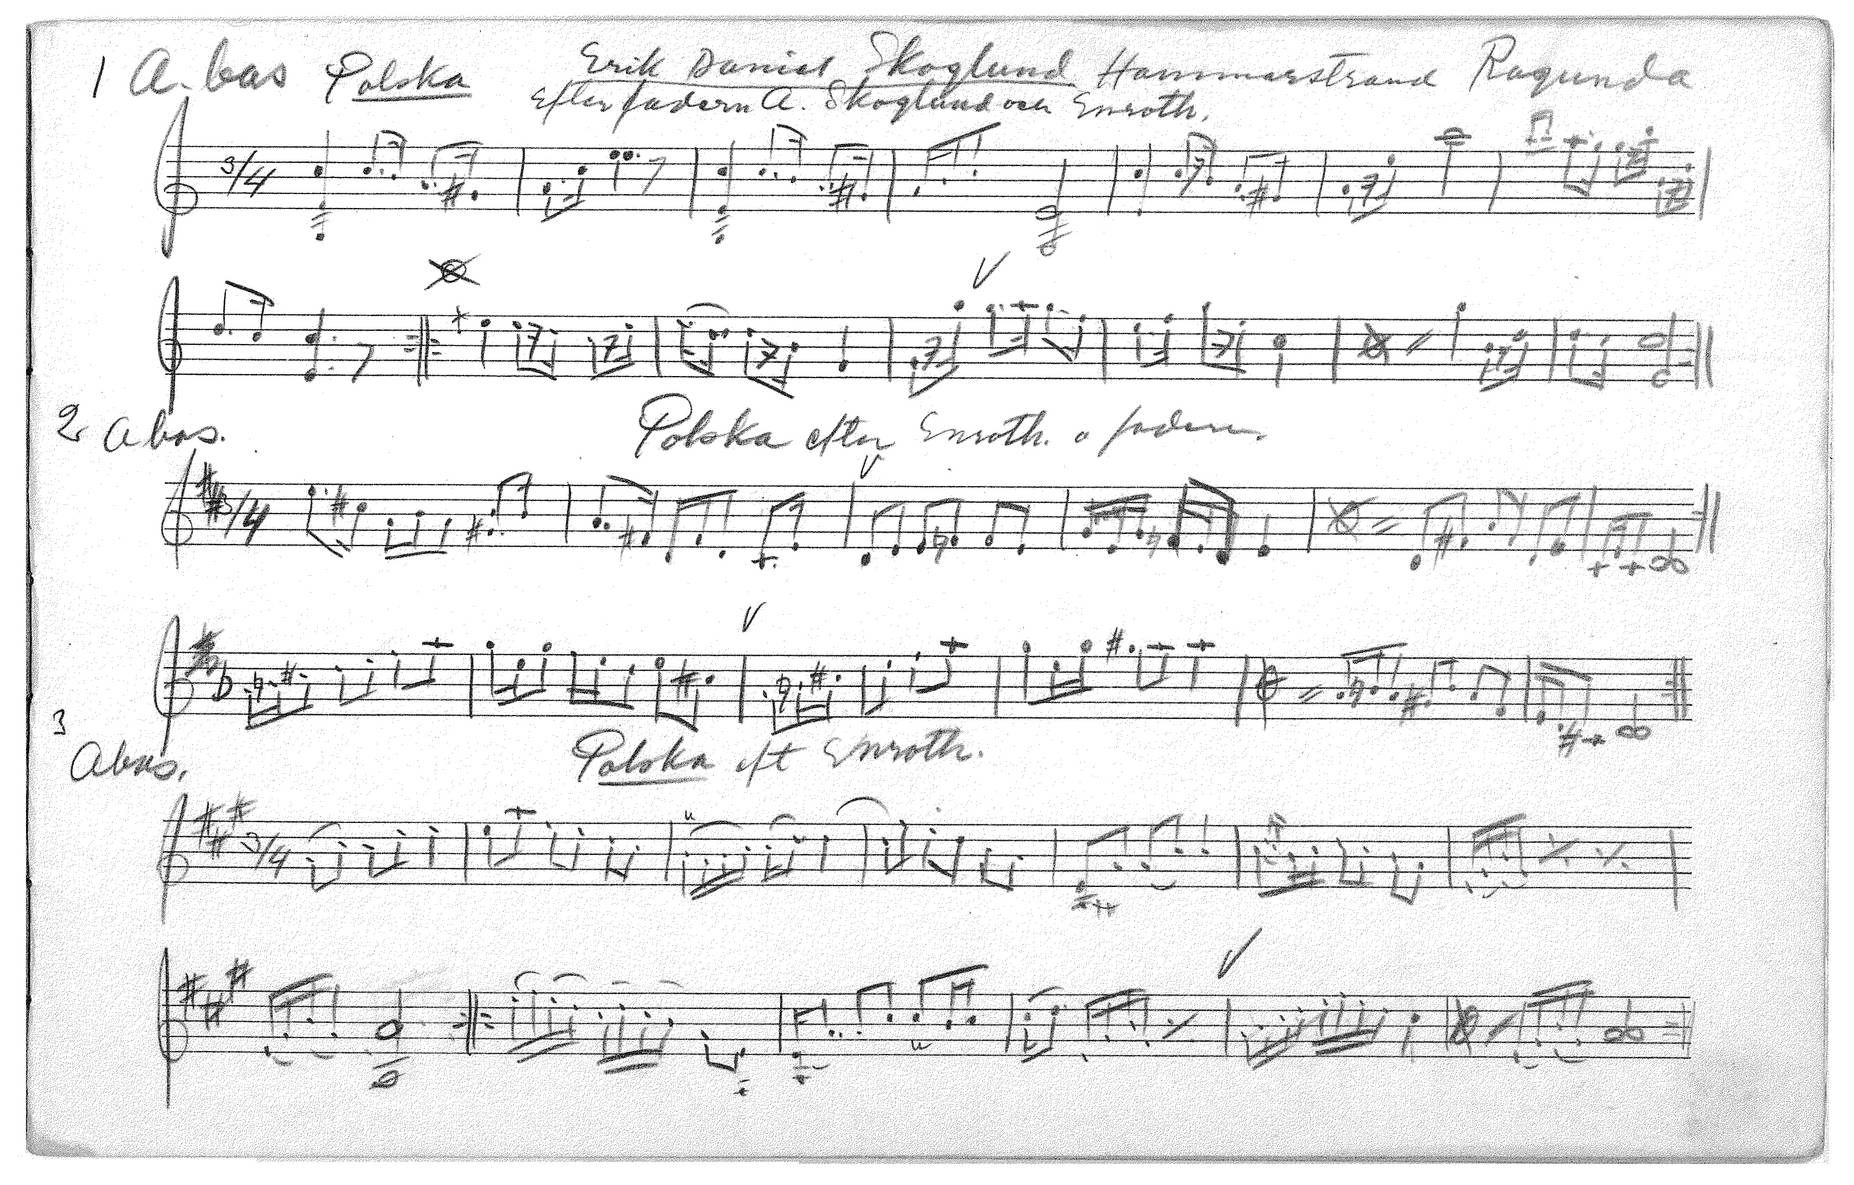 1 A. bas Polska Erik Daniel Skoglund Hammarstrand Ragunda
Efter fadern A. Skoglund och Enroth.
3/4
2 A bas. Polska efter Enroth. o fadern.
3/4
3
A bas. Polska eft Enroth.
3/4